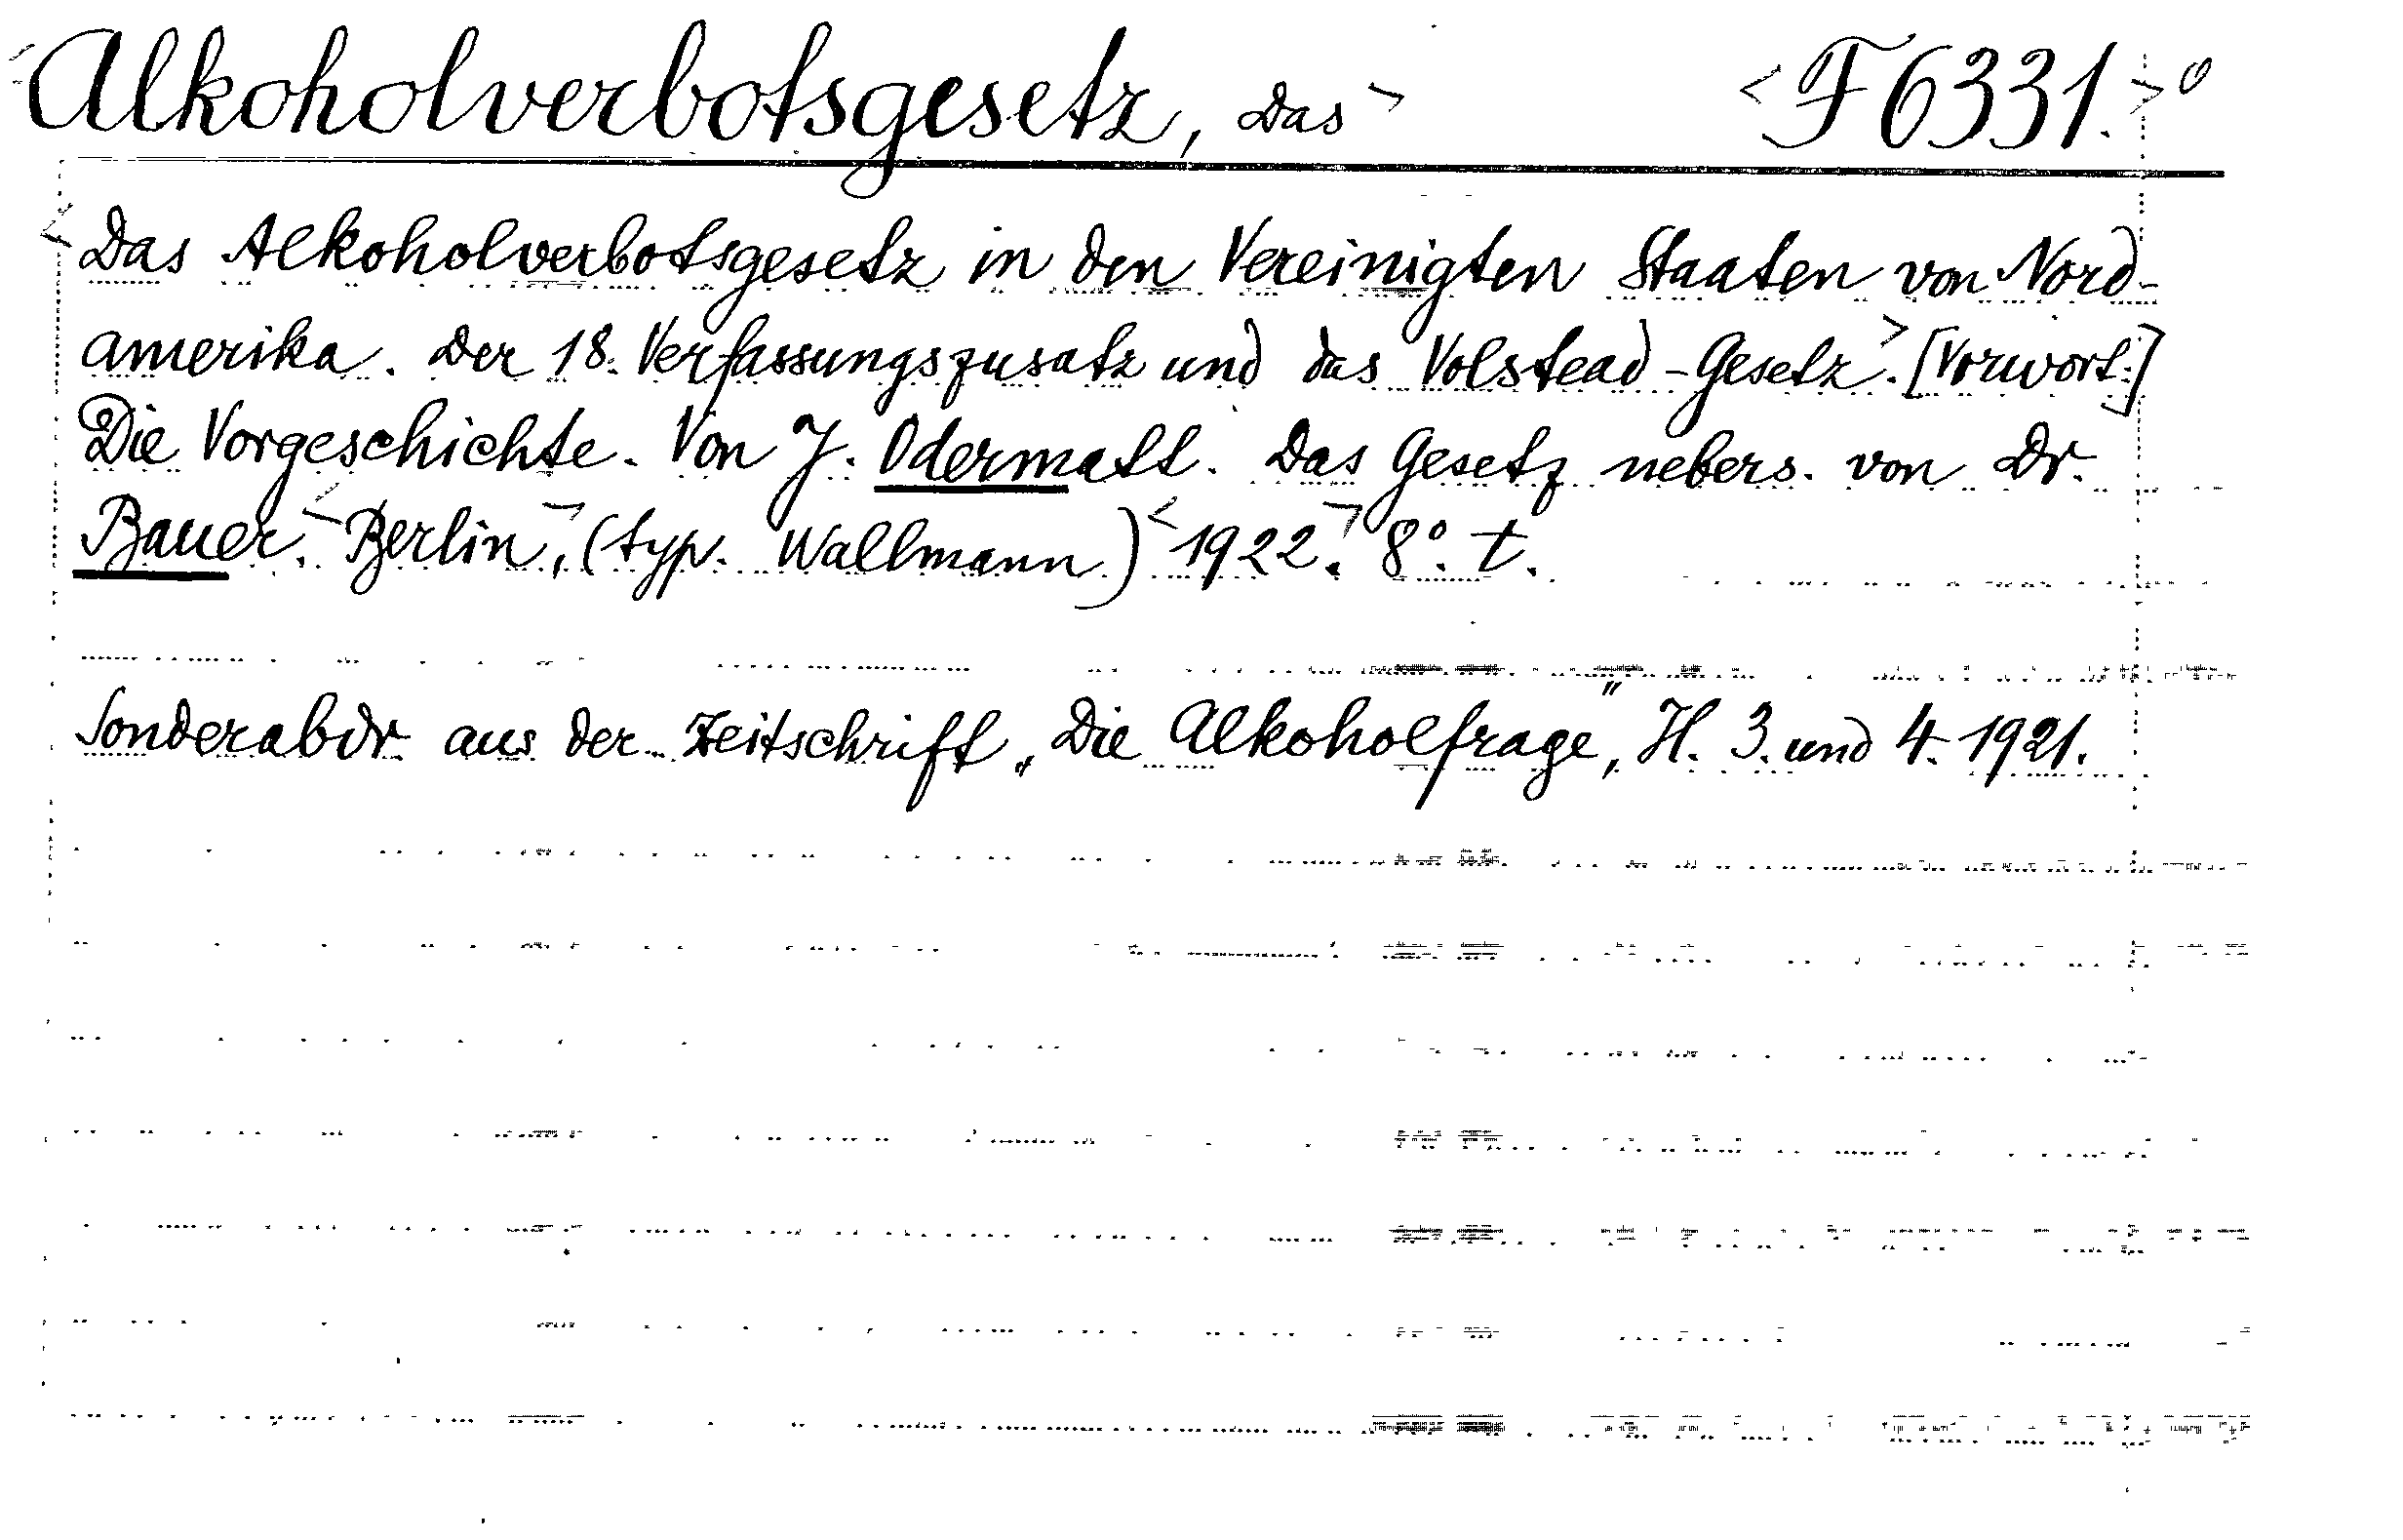 <Alkoholverbotsgesetz, Das> <F 6331.>0
<Das Alkoholverbotsgesetz in den Vereinigten Staaten von Nord-
amerika. Der 18. Verfassungszusatz und das Volstead-Gesetz>. [Vorwort:]
Die Vorgeschichte. Von J. Odermatt. Das Gesetz uebers. von Dr.
Bauer. <Berlin>, (typ. Wallmann) <1922>. 8°. t.
Sonderabdr. aus der Zeitschrift „Die Alkoholfrage“, H. 3. und 4. 1921.